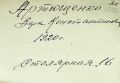 Артющенко
Лук Константин
1920г.
Столярная 16